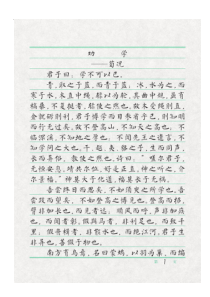 劝 学
——荀况
君子曰：学不可以已。
青，取之于蓝，而青于蓝；冰，水为之，而
寒于水。木直中绳，輮以为轮，其曲中规，虽有
槁暴，不复挺者，輮使之然也。故木受绳则直，
金就砺则利，君子博学而日参省乎己，则知明
而行无过矣。故不登高山，不知天之高也；不
临深溪，不知地之厚也；不闻先王之遗言，不
知学问之大也。干、越、夷、貉之子，生而同声，
长而异俗，教使之然也。诗曰：“嗟尔君子，
无恒安息。靖共尔位，好是正直。神之听之，介
尔景福。”神莫大于化道，福莫长于无祸。
吾尝终日而思矣，不如须臾之所学也。吾
尝跂而望矣，不如登高之博见也。登高而招，
臂非加长也，而见者远；顺风而呼，声非加疾
也，而闻者彰。假舆马者，非利足也，而致千
里；假舟楫者，非能水也，而绝江河。君子生
非异也，善假于物也。
南方有鸟焉，名曰蒙鸠，以羽为巢，而编
1